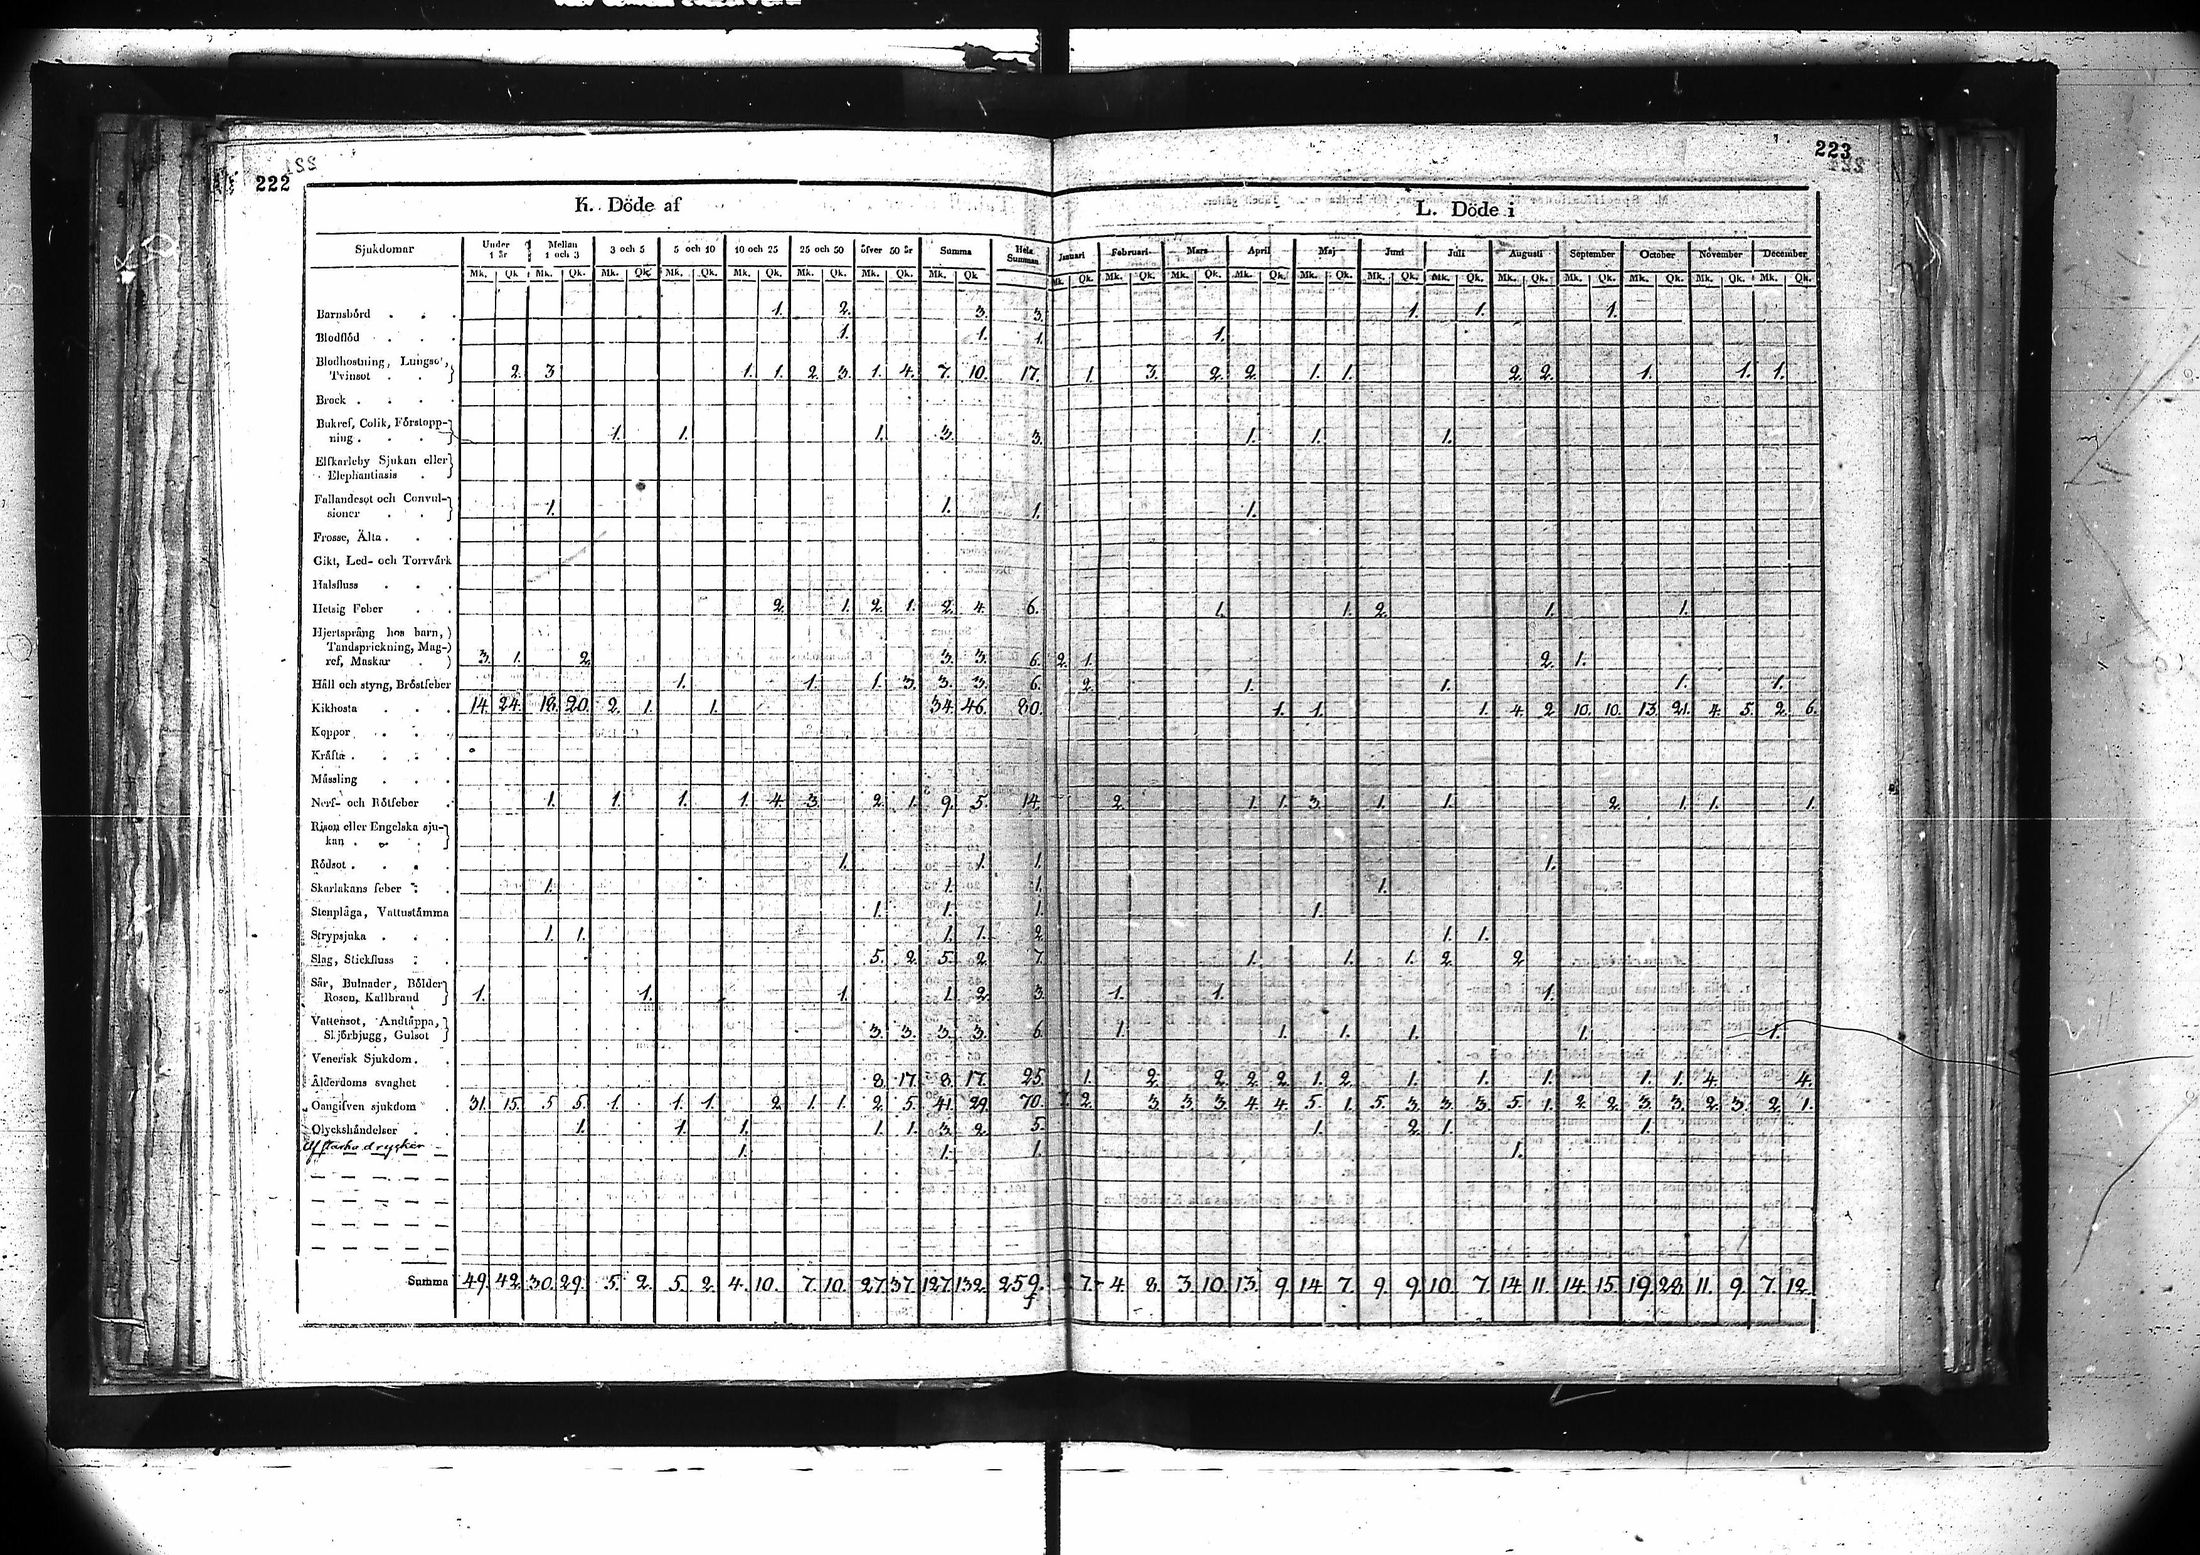 222
223
K. Döde af
L. Döde i
Sjukdomar Under 1 år Mellan 1 och 3 3 och 5 5 och 10 10 och 25 25 och 50 öfver 50 år Summa Hela Summan Januari Februari Mars April Maj Juni Juli Augusti September October November December
Mk. Qk. Mk. Qk. Mk. Qk. Mk. Qk. Mk. Qk. Mk. Qk. Mk. Qk. Mk. Qk. Mk. Qk. Mk. Qk. Mk. Qk. Mk. Qk. Mk. Qk. Mk. Qk. Mk. Qk. Mk. Qk. Mk. Qk. Mk. Qk. Mk. Qk. Mk. Qk.
Barnsbörd . . . 1. 2. 3. 3. 1. 1. 1.
Blodflöd . . . 1. 1. 1. 1.
Blodhostning, Lungsot,
Tvinsot . . 2. 3 1. 1. 2. 3. 1. 4. 7. 10. 17. 1. 3. 2. 2. 1. 1. 2. 2. 1. 1. 1.
Brock . . . .
Bukref, Colik, Förstopp-
ning . . . 1. 1. 1. 3. 3. 1. 1. 1.
Elfkarleby Sjukan eller
Elephantiasis .
Fallandesot och Convul-
sioner . . 1. 1. 1. 1.
Frosse, Älta . . .
Gikt, Led- och Torrvärk
Halsfluss . . .
Hetsig Feber . . 2. 1. 2. 1. 2. 4. 6. 1. 1. 2. 1. 1.
Hjertsprång hos barn,
Tandsprickning, Mag-
ref, Maskar . 3. 1. 2. 3. 3. 6. 2. 1. 2. 1.
Håll och styng, Bröstfeber 1. 1. 1. 3. 3. 3. 6. 2. 1. 1. 1. 1.
Kikhosta . . . 14. 24. 18. 20. 2. 1. 1. 34. 46. 80. 1. 1. 1. 4. 2 10. 10. 13. 21. 4. 5. 2. 6.
Koppor . . .
Kräfta . . . .
Mässling . . .
Nerf- och Rötfeber . 1. 1. 1. 1. 4. 3. 2. 1. 9. 5. 14. 2. 1. 1. 3. 1. 1. 2. 1. 1. 1.
Risen eller Engelska sju-
kan . . .
Rödsot . . . . 1. 1. 1. 1.
Skarlakans feber . 1. 1. 1. 1.
Stenplåga, Vattustämma 1. 1. 1. 1.
Strypsjuka . . . 1. 1. 1. 1. 2 1. 1.
Slag, Stickfluss . . 5. 2. 5. 2. 7. 1. 1. 1. 2. 2
Sår, Bulnader, Bölder
Rosen, Kallbrand 1. 1. 1. 1. 2. 3. 1. 1. 1.
Vattensot, Andtäppa,
Skjörbjugg, Gulsot 3. 3. 3. 3. 6. 1. 1. 1. 1. 1. 1.
Venerisk Sjukdom . .
Ålderdoms svaghet . 8. 17. 8. 17. 25. 1. 2. 2. 2. 2. 1. 2. 1. 1. 1. 1. 1. 4. 4.
Oangifven sjukdom . 31. 15. 5 5. 1. 1. 1. 2. 1. 1. 2. 5. 41. 29. 70. 2. 3. 3. 3. 4. 4. 5. 1. 5. 3. 3. 3. 5. 1. 2. 2. 3. 3. 2. 3. 2. 1.
Olyckshändelser . . 1. 1. 1. 1. 1. 3. 2. 5. 1. 2. 1. 1.
Af starka drycker 1. 1. 1. 1.
Summa 49. 42. 30. 29. 5. 2. 5. 2. 4. 10. 7. 10. 27. 37. 127. 132. 259. 7. 4. 8. 3. 10. 13. 9. 14. 7. 9. 9. 10. 7. 14. 11. 14. 15. 19. 28. 11. 9. 7. 12.